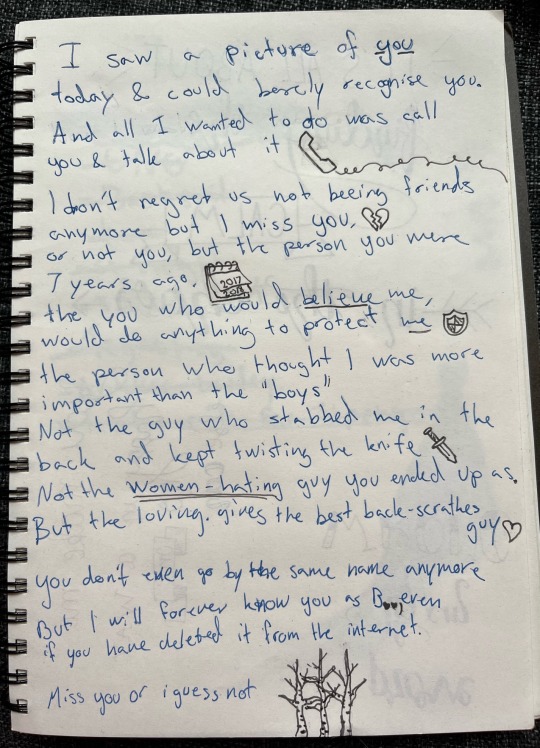 I saw a picture of you
today & could berely recognise you.
And all I wanted to do was call
you & talk about it
I don't regret us not beeing friends
anymore but I miss you,
or not you, but the person you were
7 years ago,
2017
2018
the you who would believe me,
would do anything to protect me
the person who thought I was more
important than the "boys"
Not the guy who stabbed me in the
back and kept twisting the knife
Not the women-hating guy you ended up as.
But the loving. gives the best back-scrathes
guy
you don't even go by the same name anymore
But I will forever know you as B.., even
if you have deleted it from the internet.
Miss you or i guess not